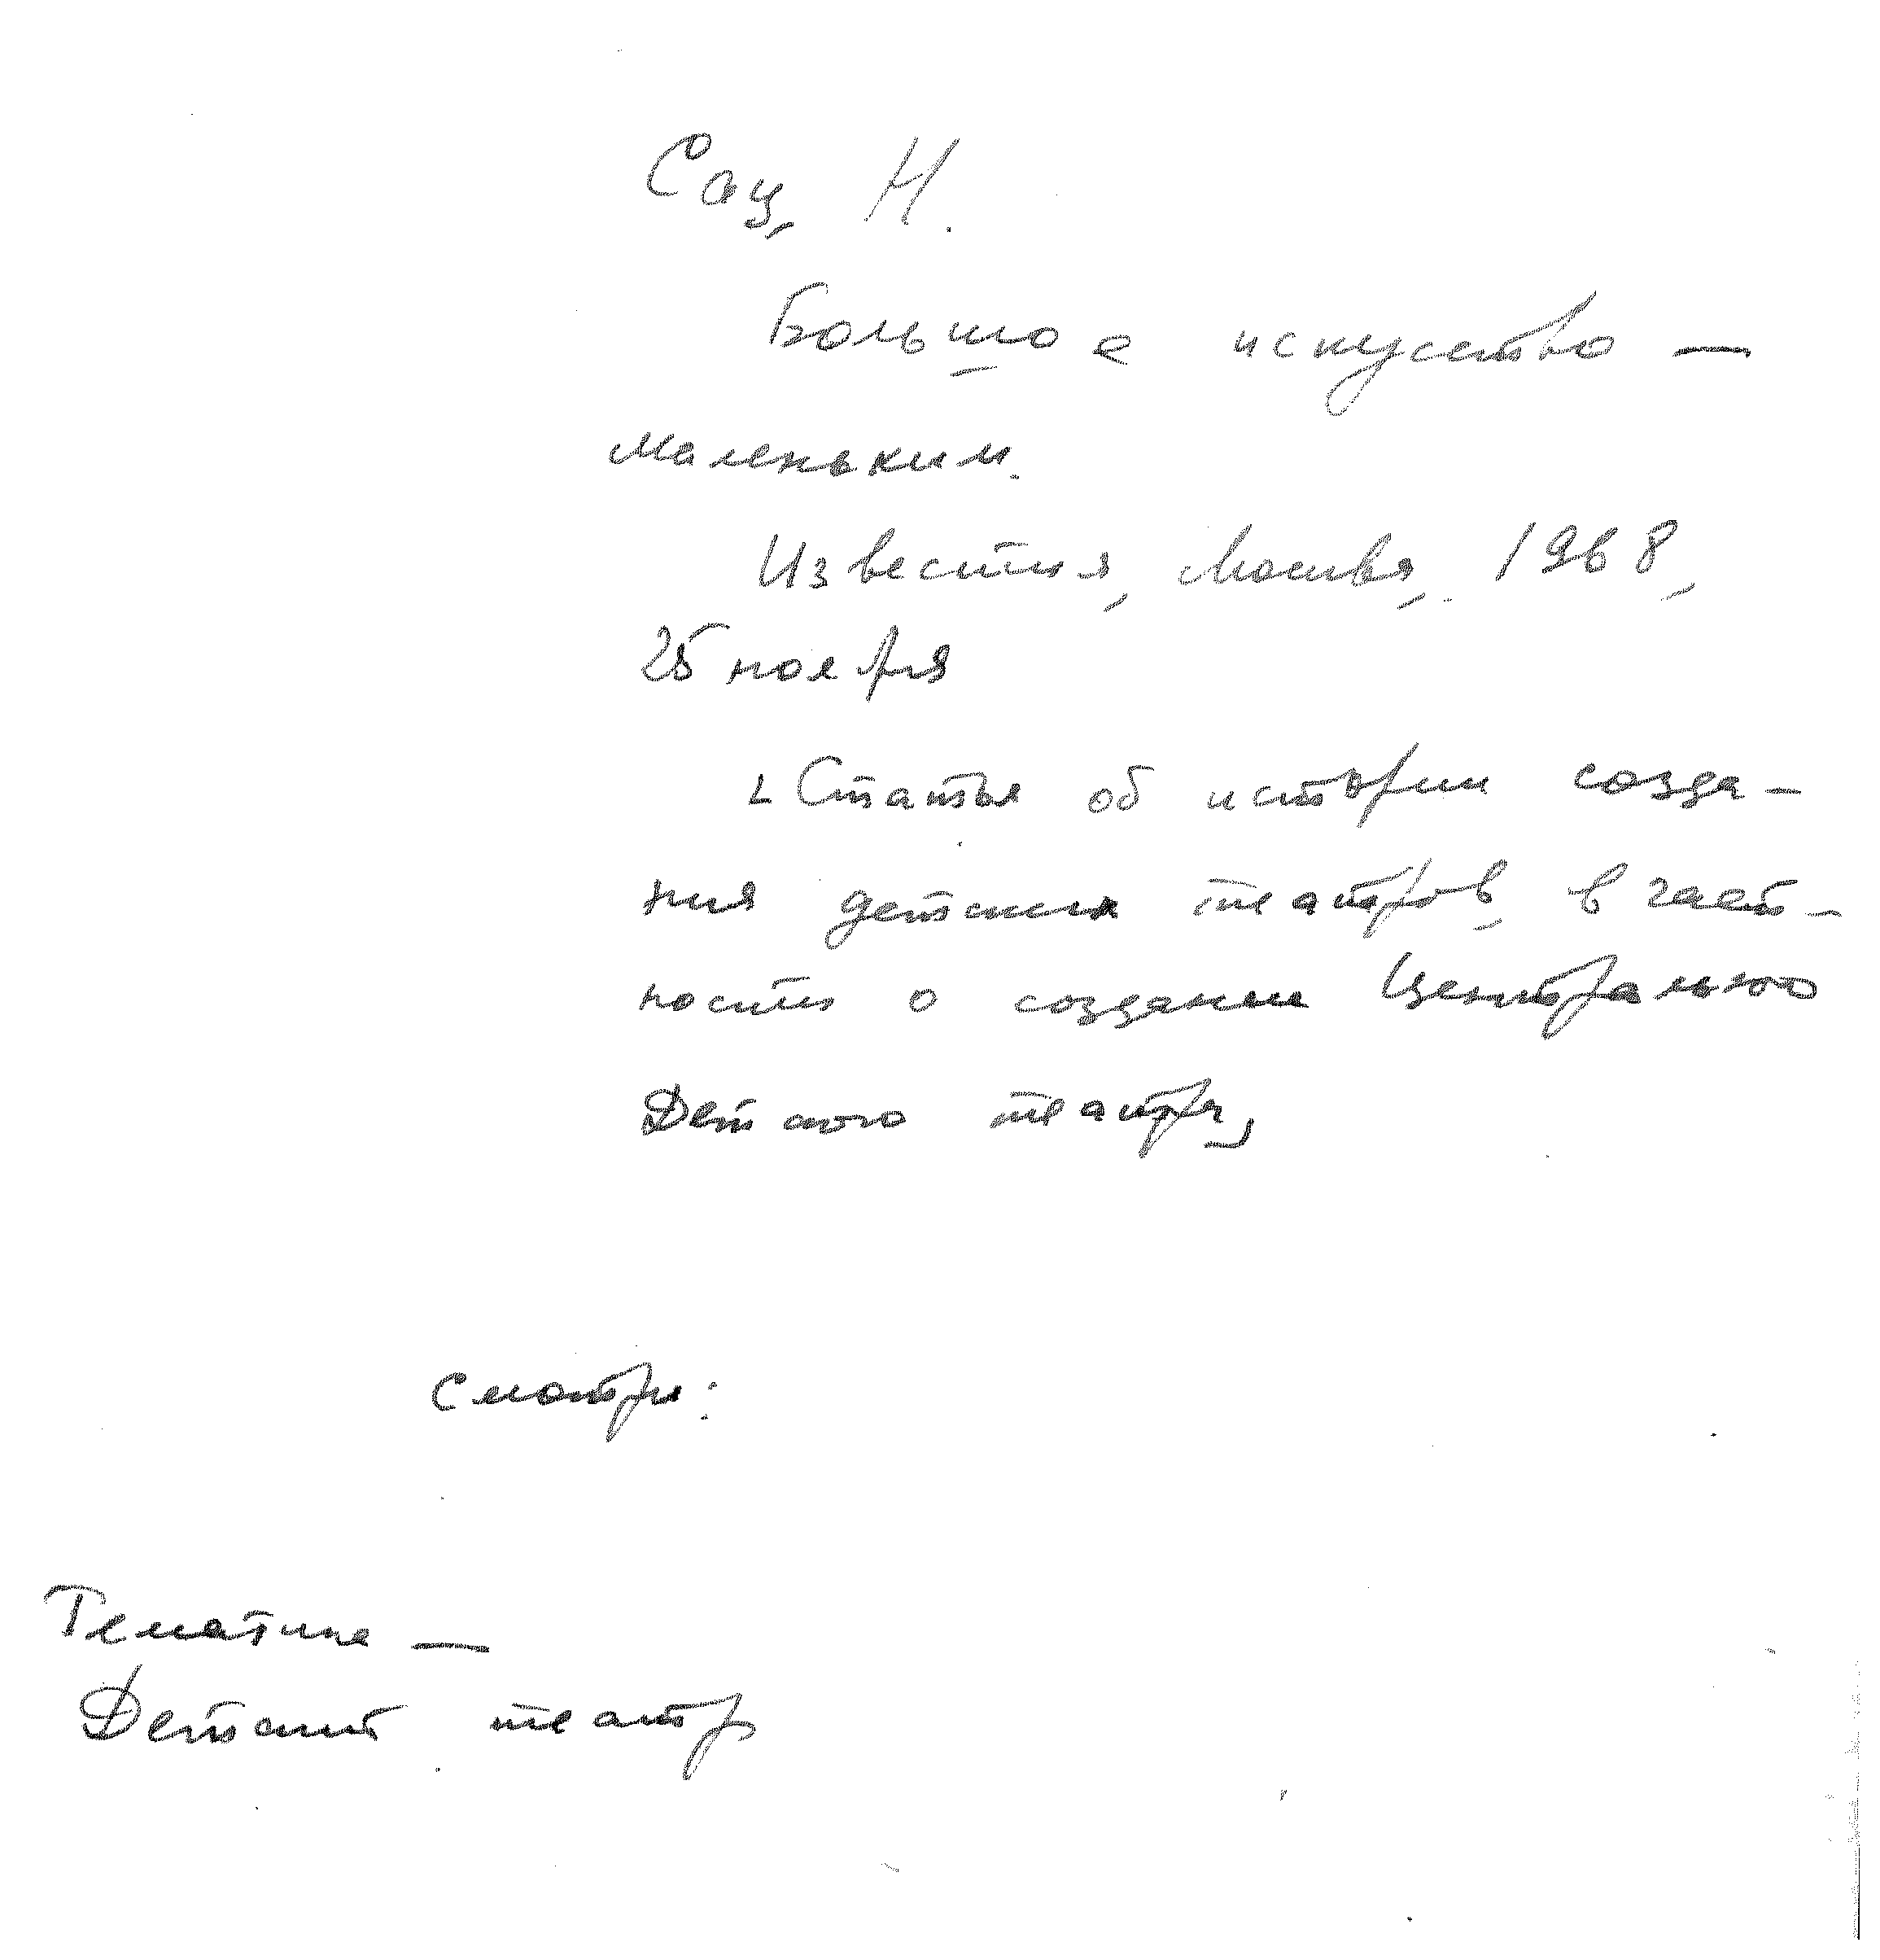 Сац, Н.
Большое искусство —
маленьким.
Известия, Москва, 1968,
25 ноября
Статья об истории созда-
ния детских театров, в част-
ности о создании Центрального
Детского театра
смотри:
Тематика —
Детский театр